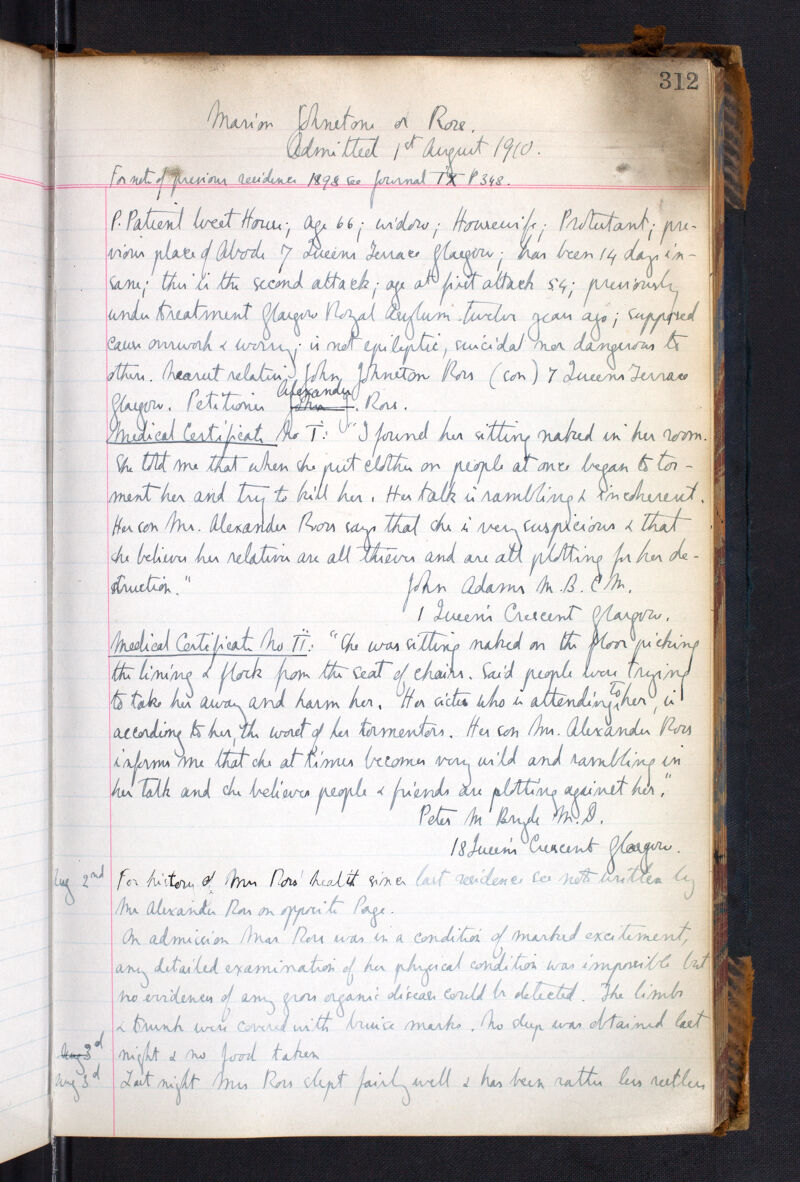 312
Marion Johnstone or Ross.
Admitted 1st August 1910.
For note of previous residence 1898 see Journal IX P 348.
P. Patient West House; age 66; widow; Housewife; Protestant; pre-
vious place of Abode 7 Queens Terrace Glasgow; has been 14 days in-
sane; this is the second attack; age at first attack 54; previously
under treatment Glasgow Royal Asylum twelve years ago; supposed
cause overwork & worry; is not epileptic, suicidal nor dangerous to
others. Nearest relative John Johnston Ross (son) 7 Queens Terrace
Alexander
Glasgow. Petitioner John J. Ross.
Medical Certificate No I: "I found her sitting naked in her room.
She told me that when she put clothes on people at once began to tor-
ment her and try to kill her. Her talk is rambling & incoherent.
Her son Mr. Alexander Ross says that she is very suspicious & that
she believes her relatives are all thieves and are all plotting for her de-
struction."
John Adams M.B. C.M.
1 Queen's Crescent Glasgow.
Medical Certificate No II: "She was sitting naked on the floor picking
the lining & flock from the seat of chairs. Said people were trying
to take her away and harm her. Her sister who is attending to her, is
according to her, the worst of her tormentors. Her son Mr. Alexander Ross
informs me that she at times becomes very wild and rambling in
her talk and she believes people & friends are plotting against her."
Peter M Bryde M.D.
18 Queen's Crescent Glasgow.
Aug 2nd For history of Mrs Ross' health since last residence see note written by
Mr Alexander Ross on opposite Page.
On admission Mrs Ross was in a condition of marked excitement,
any detailed examination of her physical condition was impossible but
no evidence of any gross organic disease could be detected. The limbs
& trunk were covered with bruise marks. No sleep was obtained last
Aug 3d night & no food taken
Aug 3d Last night Mrs Ross slept fairly well & has been rather less restless